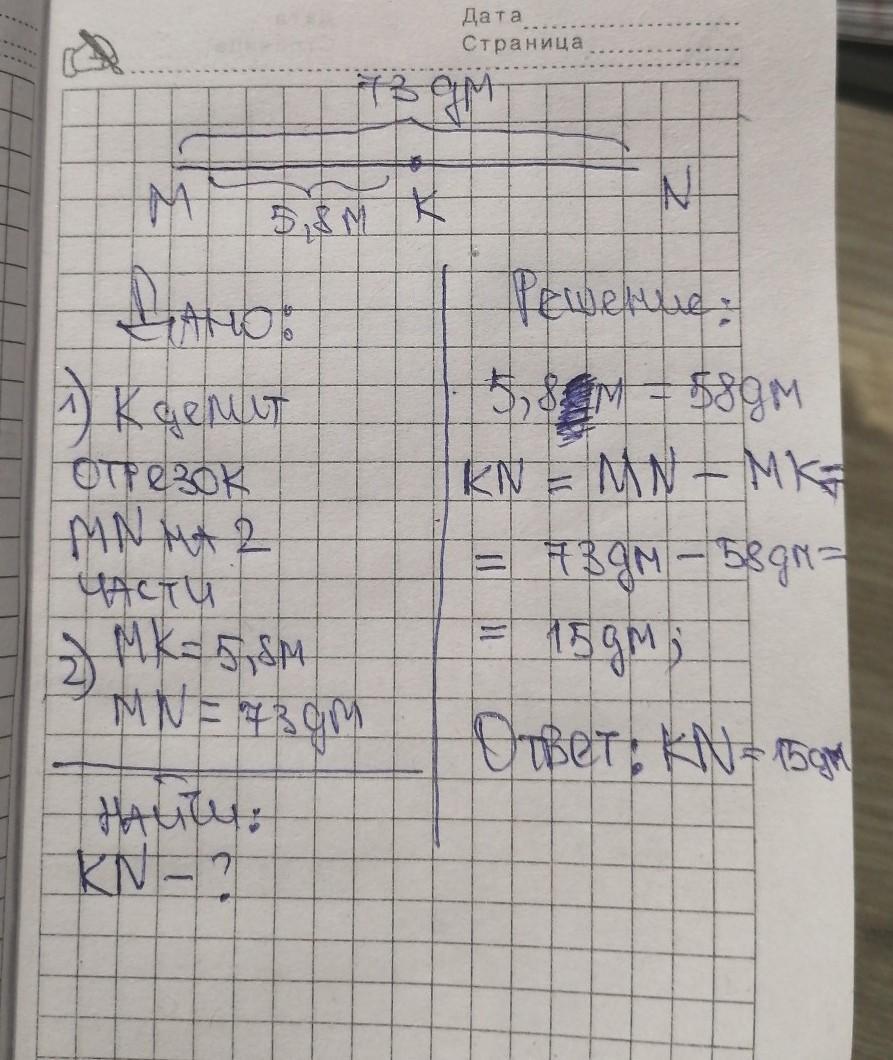 Дата
Страница
73 дм
M K N
5,8 м
Дано:
1) K делит
отрезок
MN на 2
части
2) MK = 5,8м
MN = 73 дм
Найти:
KN - ?
Решение:
5,8 м = 58дм
KN = MN - MK=
= 73дм - 58дм=
= 15дм;
Ответ: KN = 15дм